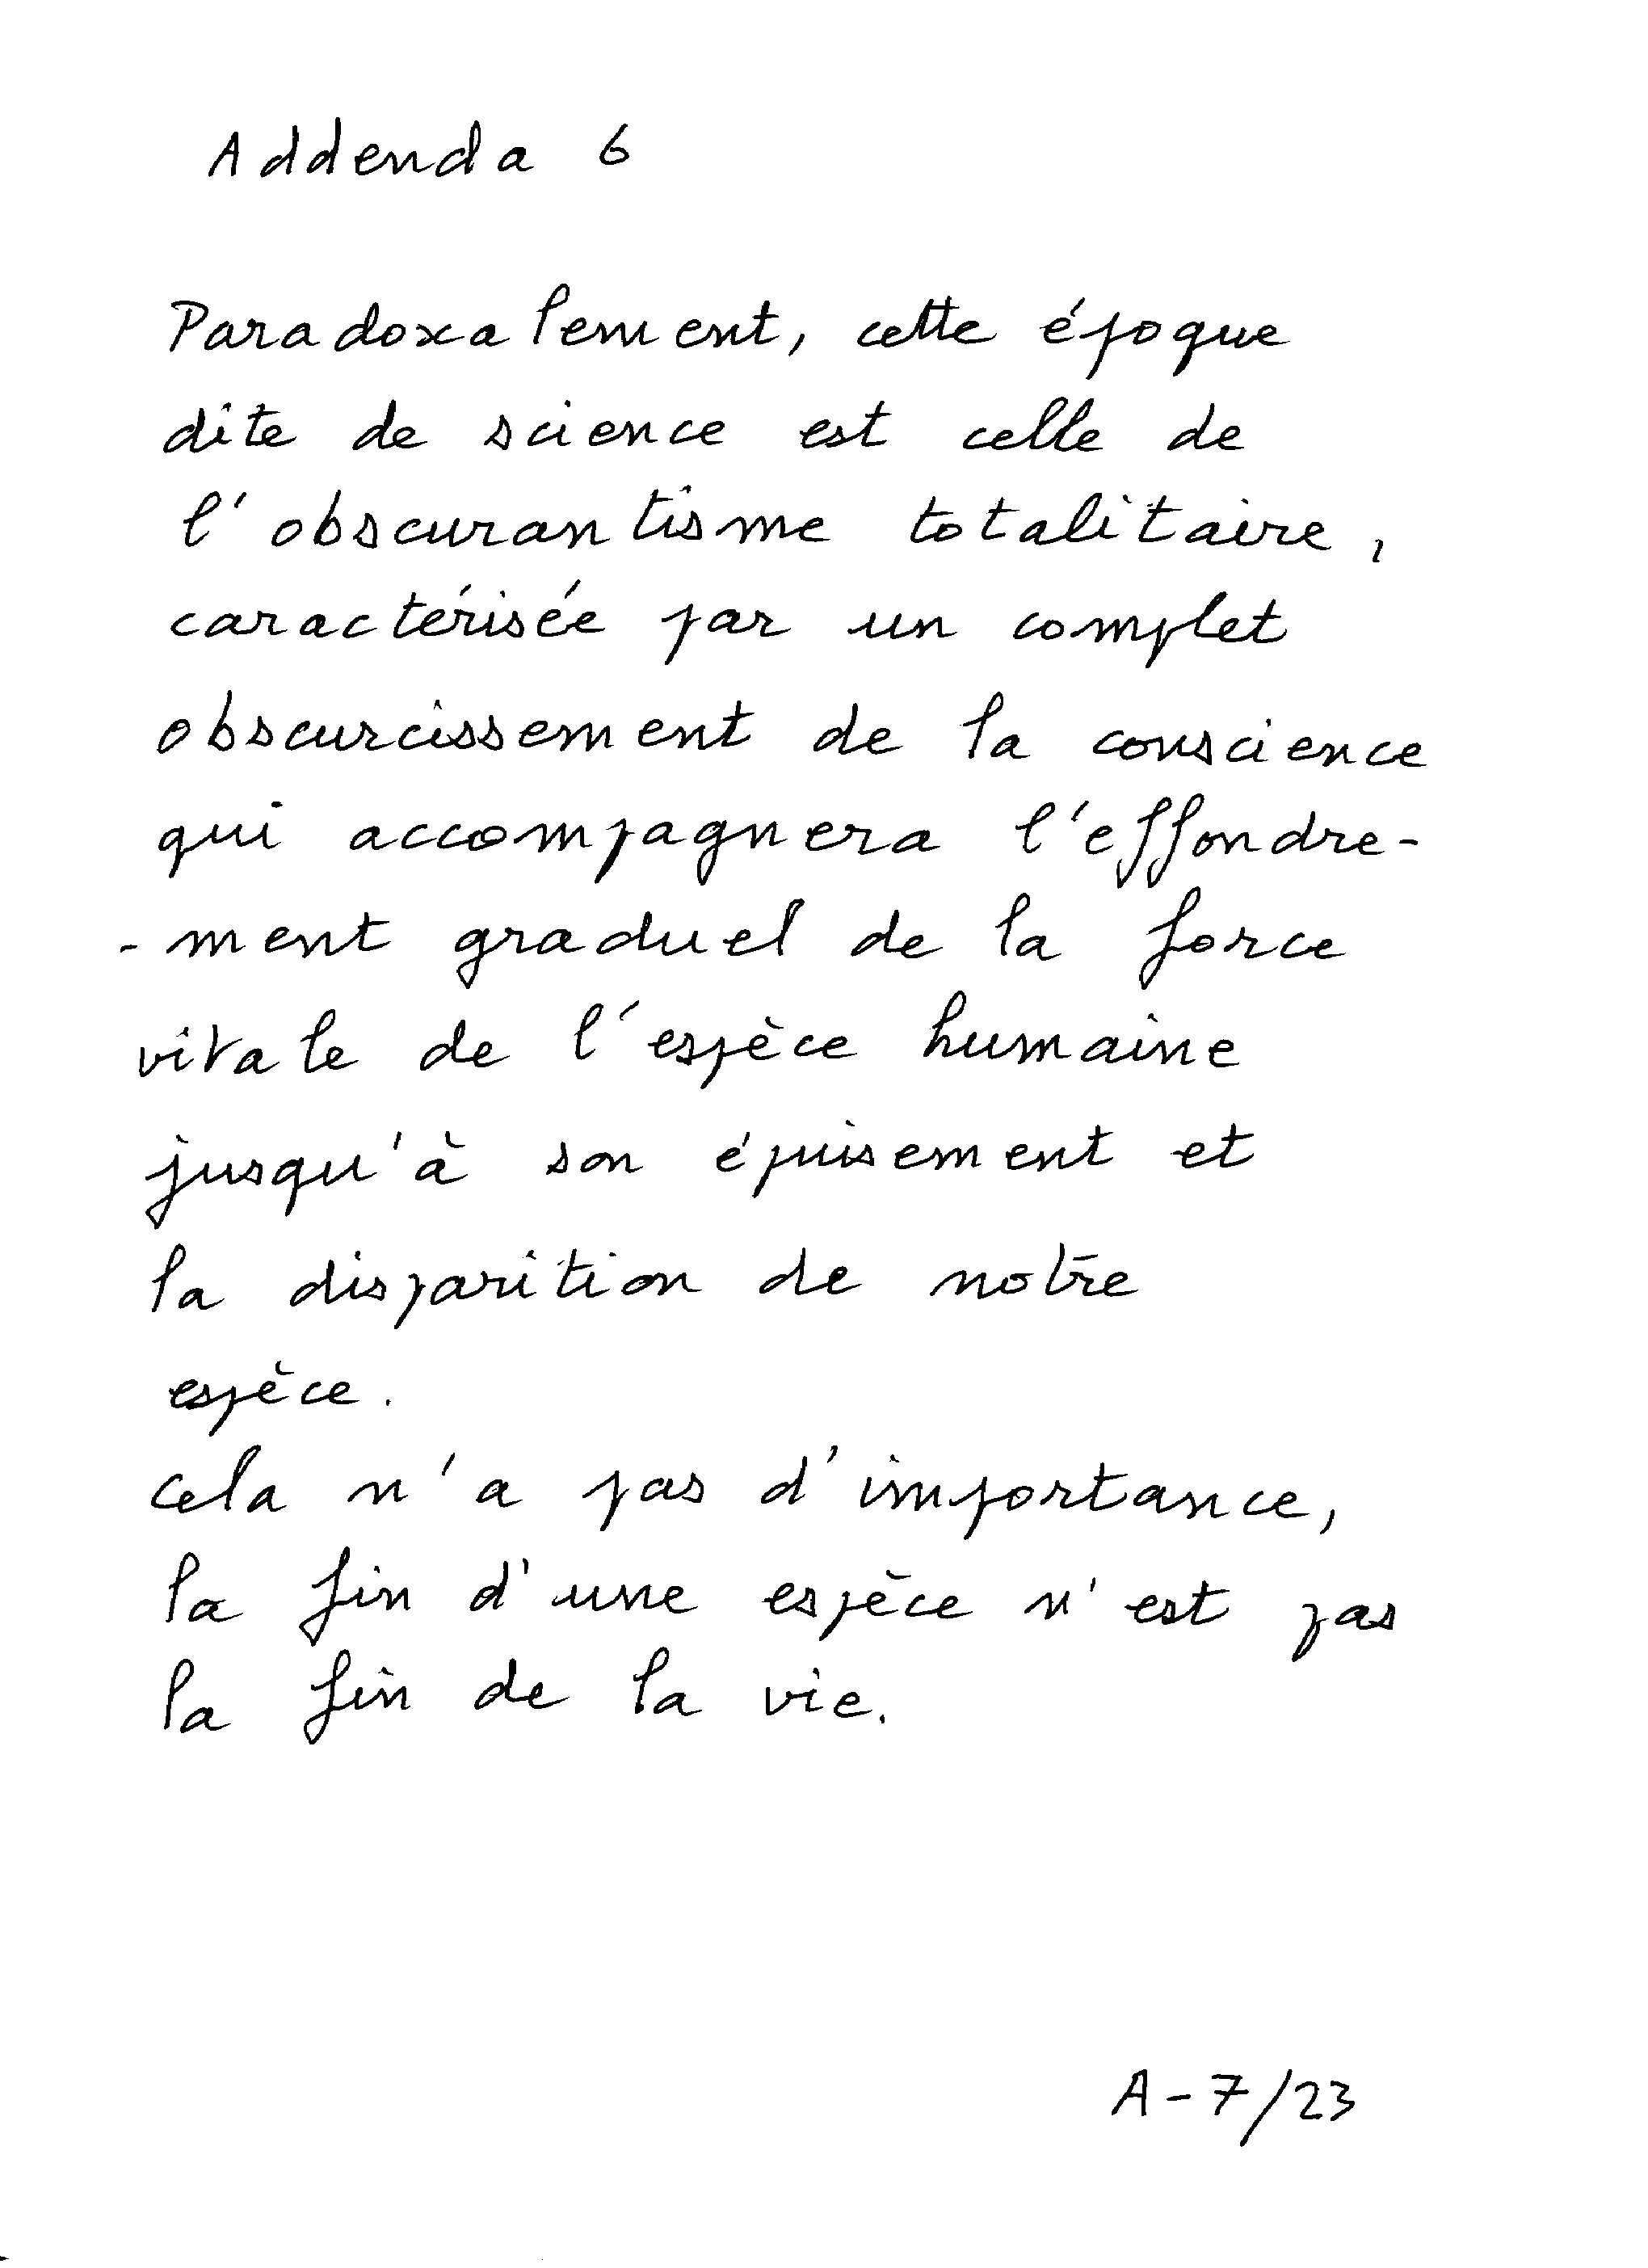 Addenda 6
Paradoxalement, cette époque
dite de science est celle de
l'obscurantisme totalitaire,
caractérisée par un complet
obscurcissement de la conscience
qui accompagnera l'effondre-
-ment graduel de la force
vitale de l'espèce humaine
jusqu'à son épuisement et
la disparition de notre
espèce.
Cela n'a pas d'importance,
la fin d'une espèce n'est pas
la fin de la vie.
A-7/23